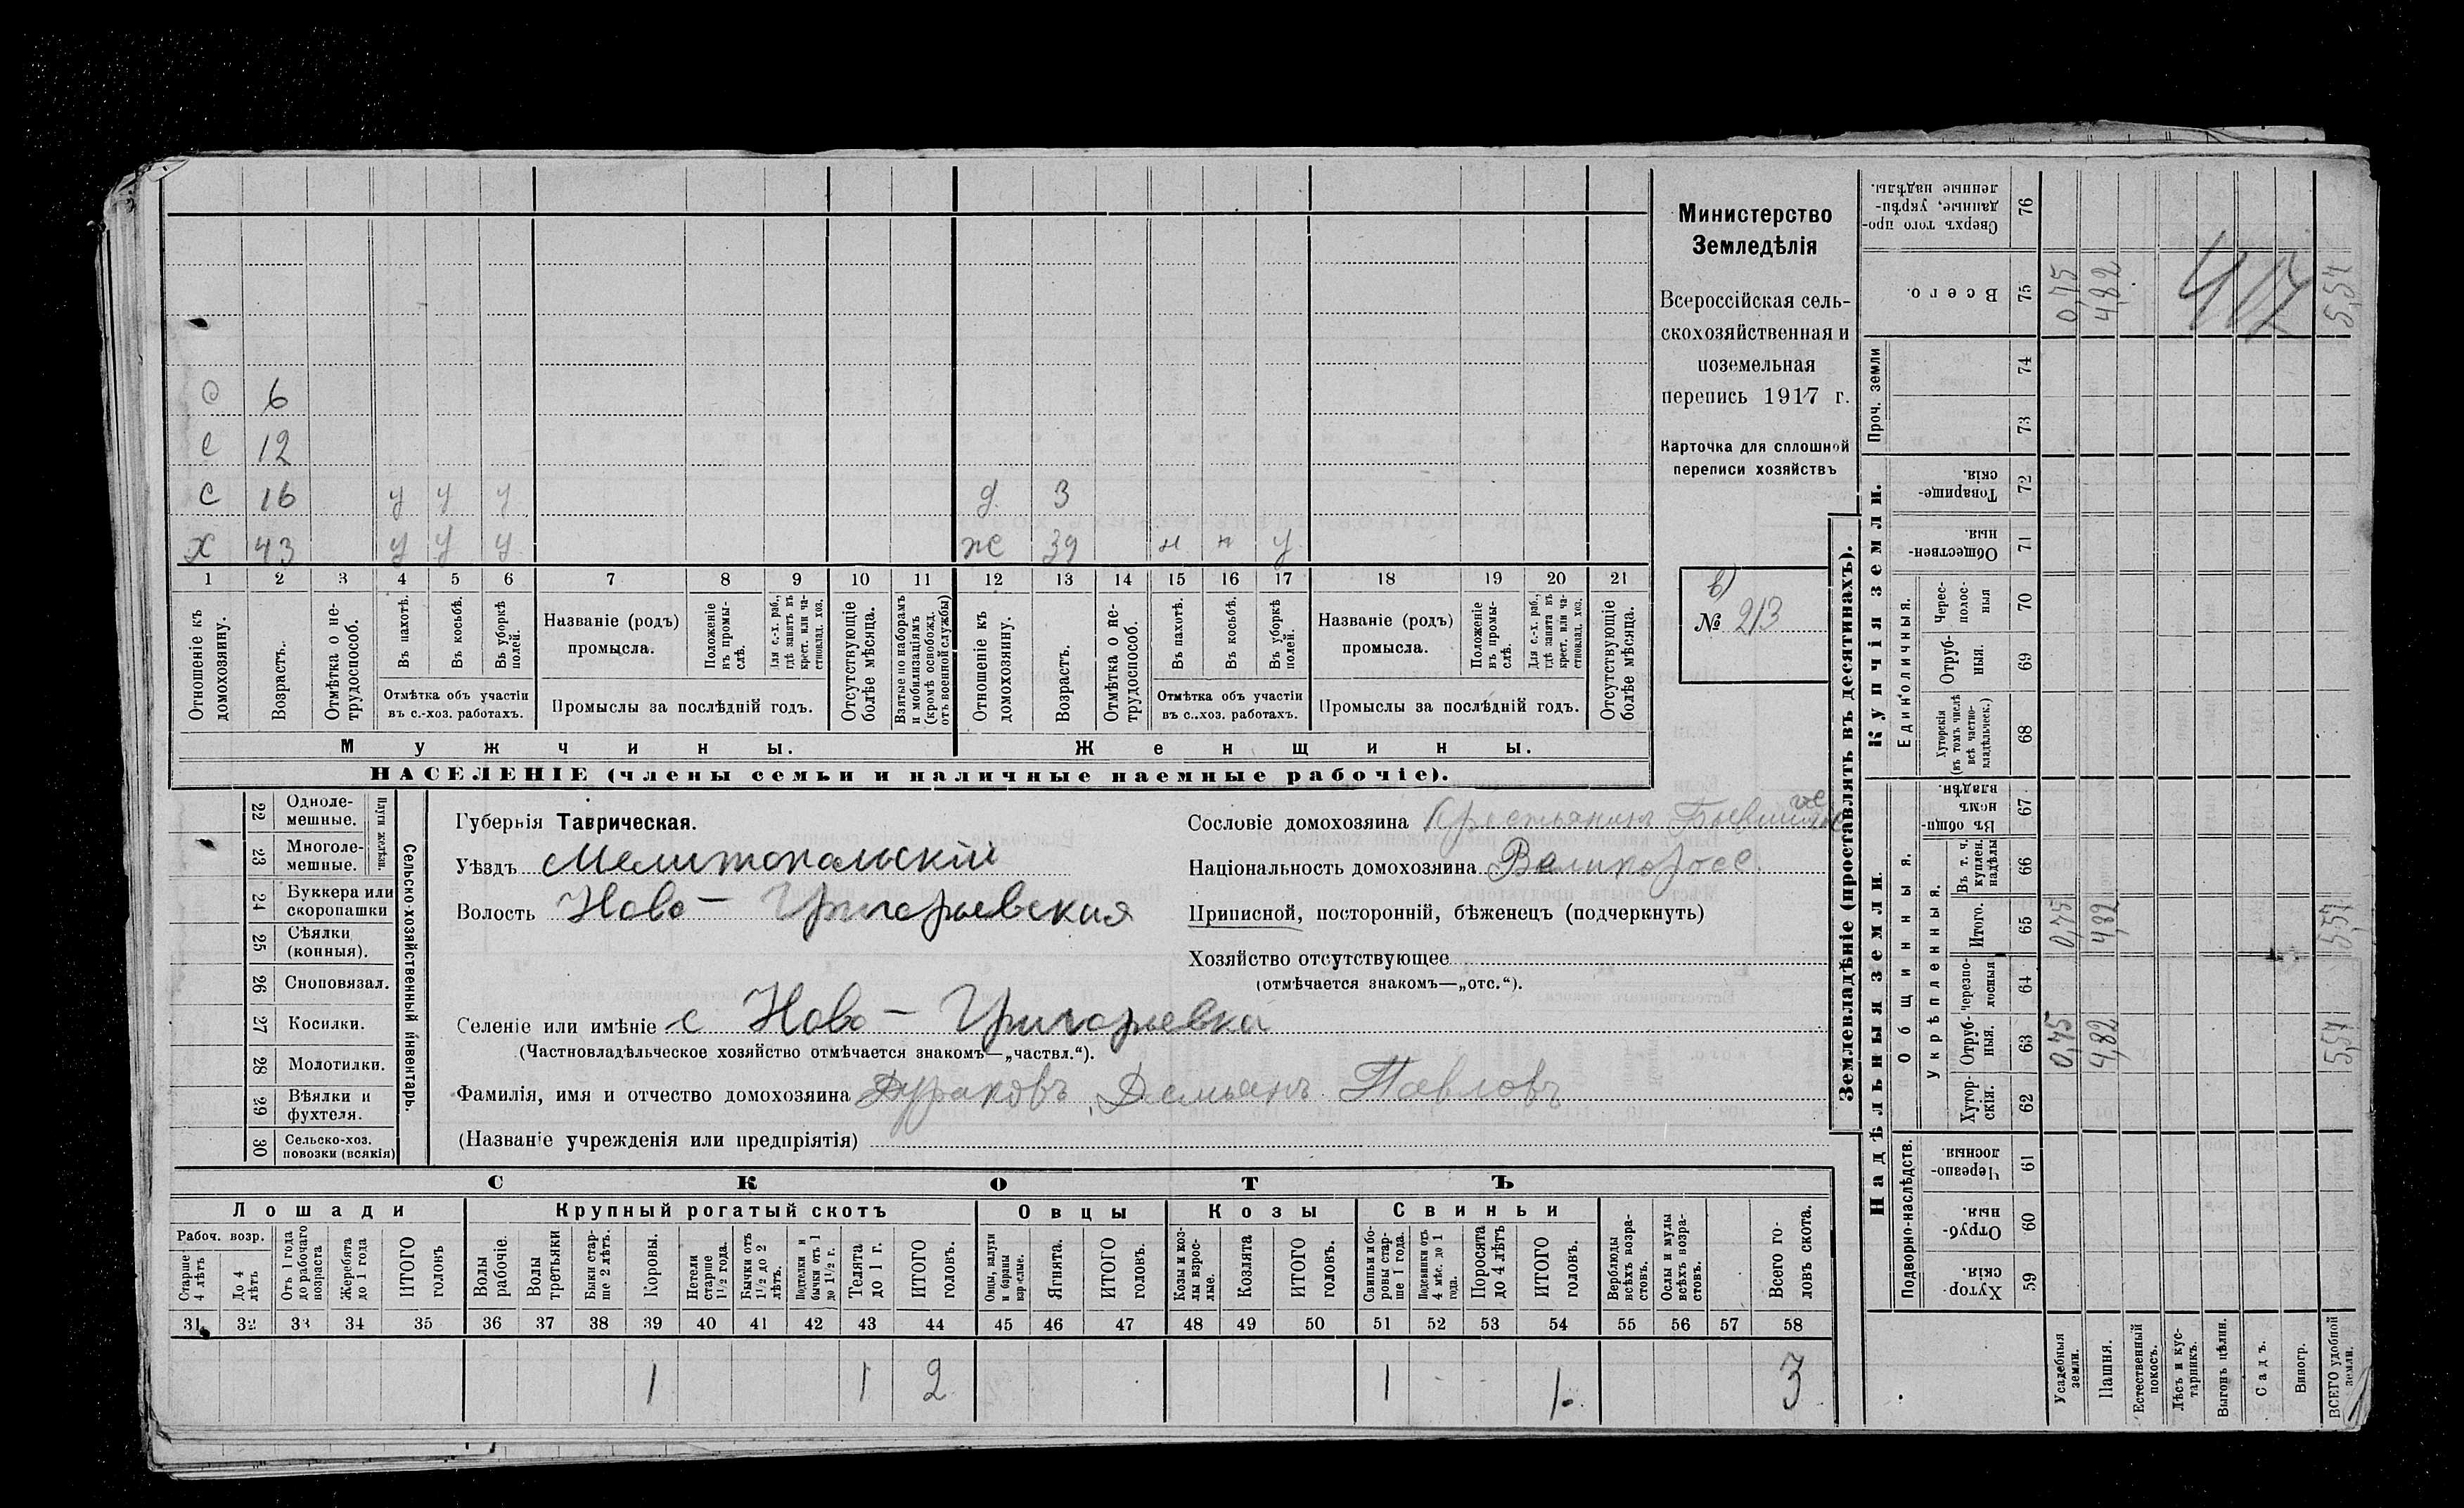 С 6
С 12
С 16 у у у д 3
Х 43 у у у ж 39 н н у
1 2 3 4 5 6 7 8 9 10 11 12 13 14 15 16 17 18 19 20 21
Отношеніе къ домохозяину.
Возрастъ.
Отмѣтка о не-трудоспособ.
Въ пахотѣ.
Въ косьбѣ.
Въ уборкѣ полей.
Отмѣтка объ участіи
въ с.-хоз. работахъ.
Названіе (родъ)
промысла.
Положеніе въ промы-слѣ.
Для с.-х. раб., гдѣ занятъ въ крест. или ча-стновлад. хоз.
Промыслы за послѣдній годъ.
Отсутствующіе болѣе мѣсяца.
Взятые по наборамъ и мобилизаціямъ (кромѣ освобожд. отъ военной службы)
Отношеніе къ домохозяину.
Возрастъ.
Отмѣтка о не-трудоспособ.
Въ пахотѣ.
Въ косьбѣ.
Въ уборкѣ полей.
Отмѣтка объ участіи
въ с.-хоз. работахъ.
Названіе (родъ)
промысла.
Положеніе въ промы-слѣ.
Для с.-х. раб., гдѣ занята въ крест. или ча-стновлад. хоз.
Промыслы за послѣдній годъ.
Отсутствующіе болѣе мѣсяца.
Мужчины.
Женщины.
НАСЕЛЕНІЕ (члены семьи и наличные наемные рабочіе).
Министерство
Земледѣлія
Всероссійская сель-
скохозяйственная и
поземельная
перепись 1917 г.
Карточка для сплошной
переписи хозяйствъ
в)
№ 213
Сельско-хозяйственный инвентарь.
Плуги желѣзн.
22 Одноле-мешные.
23 Многоле-мешные.
24 Буккера или скоропашки
25 Сѣялки (конныя).
26 Сноповязал.
27 Косилки.
28 Молотилки.
29 Вѣялки и фухтеля.
30 Сельско-хоз. повозки (всякія)
Губернія Таврическая.
Уѣздъ Мелитопольскій
Волость Ново-Григорьевская
Селеніе или имѣніе с Ново-Григорьевка
(Частновладѣльческое хозяйство отмѣчается знакомъ—„частвл.“).
Фамилія, имя и отчество домохозяина Дураковъ, Демьянъ Павловъ
(Названіе учрежденія или предпріятія)
Сословіе домохозяина Крестьянинъ
Національность домохозяина Великоросс.
Приписной, посторонній, бѣженецъ (подчеркнуть)
Хозяйство отсутствующее
(отмѣчается знакомъ—„отс.“).
СКОТЪ
Лошади Крупный рогатый скотъ Овцы Козы Свиньи
Рабоч. возр.
Старше 4 лѣтъ
До 4 лѣтъ
Отъ 1 года до рабочаго возраста
Жеребята до 1 года
ИТОГО головъ
Волы рабочіе.
Волы третьяки
Быки стар-ше 2 лѣтъ.
Коровы.
Нетели старше 1½ года.
Бычки отъ 1½ до 2 лѣтъ.
Подтелки и бычки отъ 1 до 1½ г.
Телята до 1 г.
ИТОГО головъ.
Овцы, валухи и бараны взрослые.
Ягнята.
ИТОГО головъ.
Козы и коз-лы взрос-лые.
Козлята
ИТОГО головъ.
Свиньи и бо-ровы стар-ше 1 года.
Подсвинки отъ 4 мѣс. до 1 года.
Поросята до 4 лѣтъ
ИТОГО головъ.
Верблюды всѣхъ возра-стовъ.
Ослы и мулы всѣхъ возра-стовъ.
Всего го-ловъ скота.
31 32 33 34 35 36 37 38 39 40 41 42 43 44 45 46 47 48 49 50 51 52 53 54 55 56 57 58
1 1 2 1 1 3
Землевладѣніе (проставлять въ десятинахъ).
Купчія земли.
Надѣльныя земли.
Сверхъ того про-данные, укрѣп-ленные надѣлы. 76
Всего. 75 0,75 4,82 5,57
417
Проч. земли 74
73
Товарище-скія. 72
Обществен-ныя. 71
Единоличныя.
Черес-полос-ныя 70
Отруб-ныя. 69
Хуторскія (въ томъ числѣ всѣ частно-владѣльчес.) 68
Общинныя.
Въ общи-номъ владѣн. 67
Укрѣпленныя.
Въ т. ч. куплен. надѣлы 66
Итого. 65 0,75 4,82 5,57
Черезпо-лосныя 64
Отруб-ныя. 63 0,75 4,82 5,57
Хутор-скія. 62
Подворно-наслѣдств.
Черезпо-лосныя. 61
Отруб-ныя. 60
Хутор-скія. 59
Усадебныя земли.
Пашня.
Естественный покосъ.
Лѣсъ и кус-тарникъ.
Выгонъ цѣлин.
Садъ.
Виногр.
ВСЕГО удобной земли.